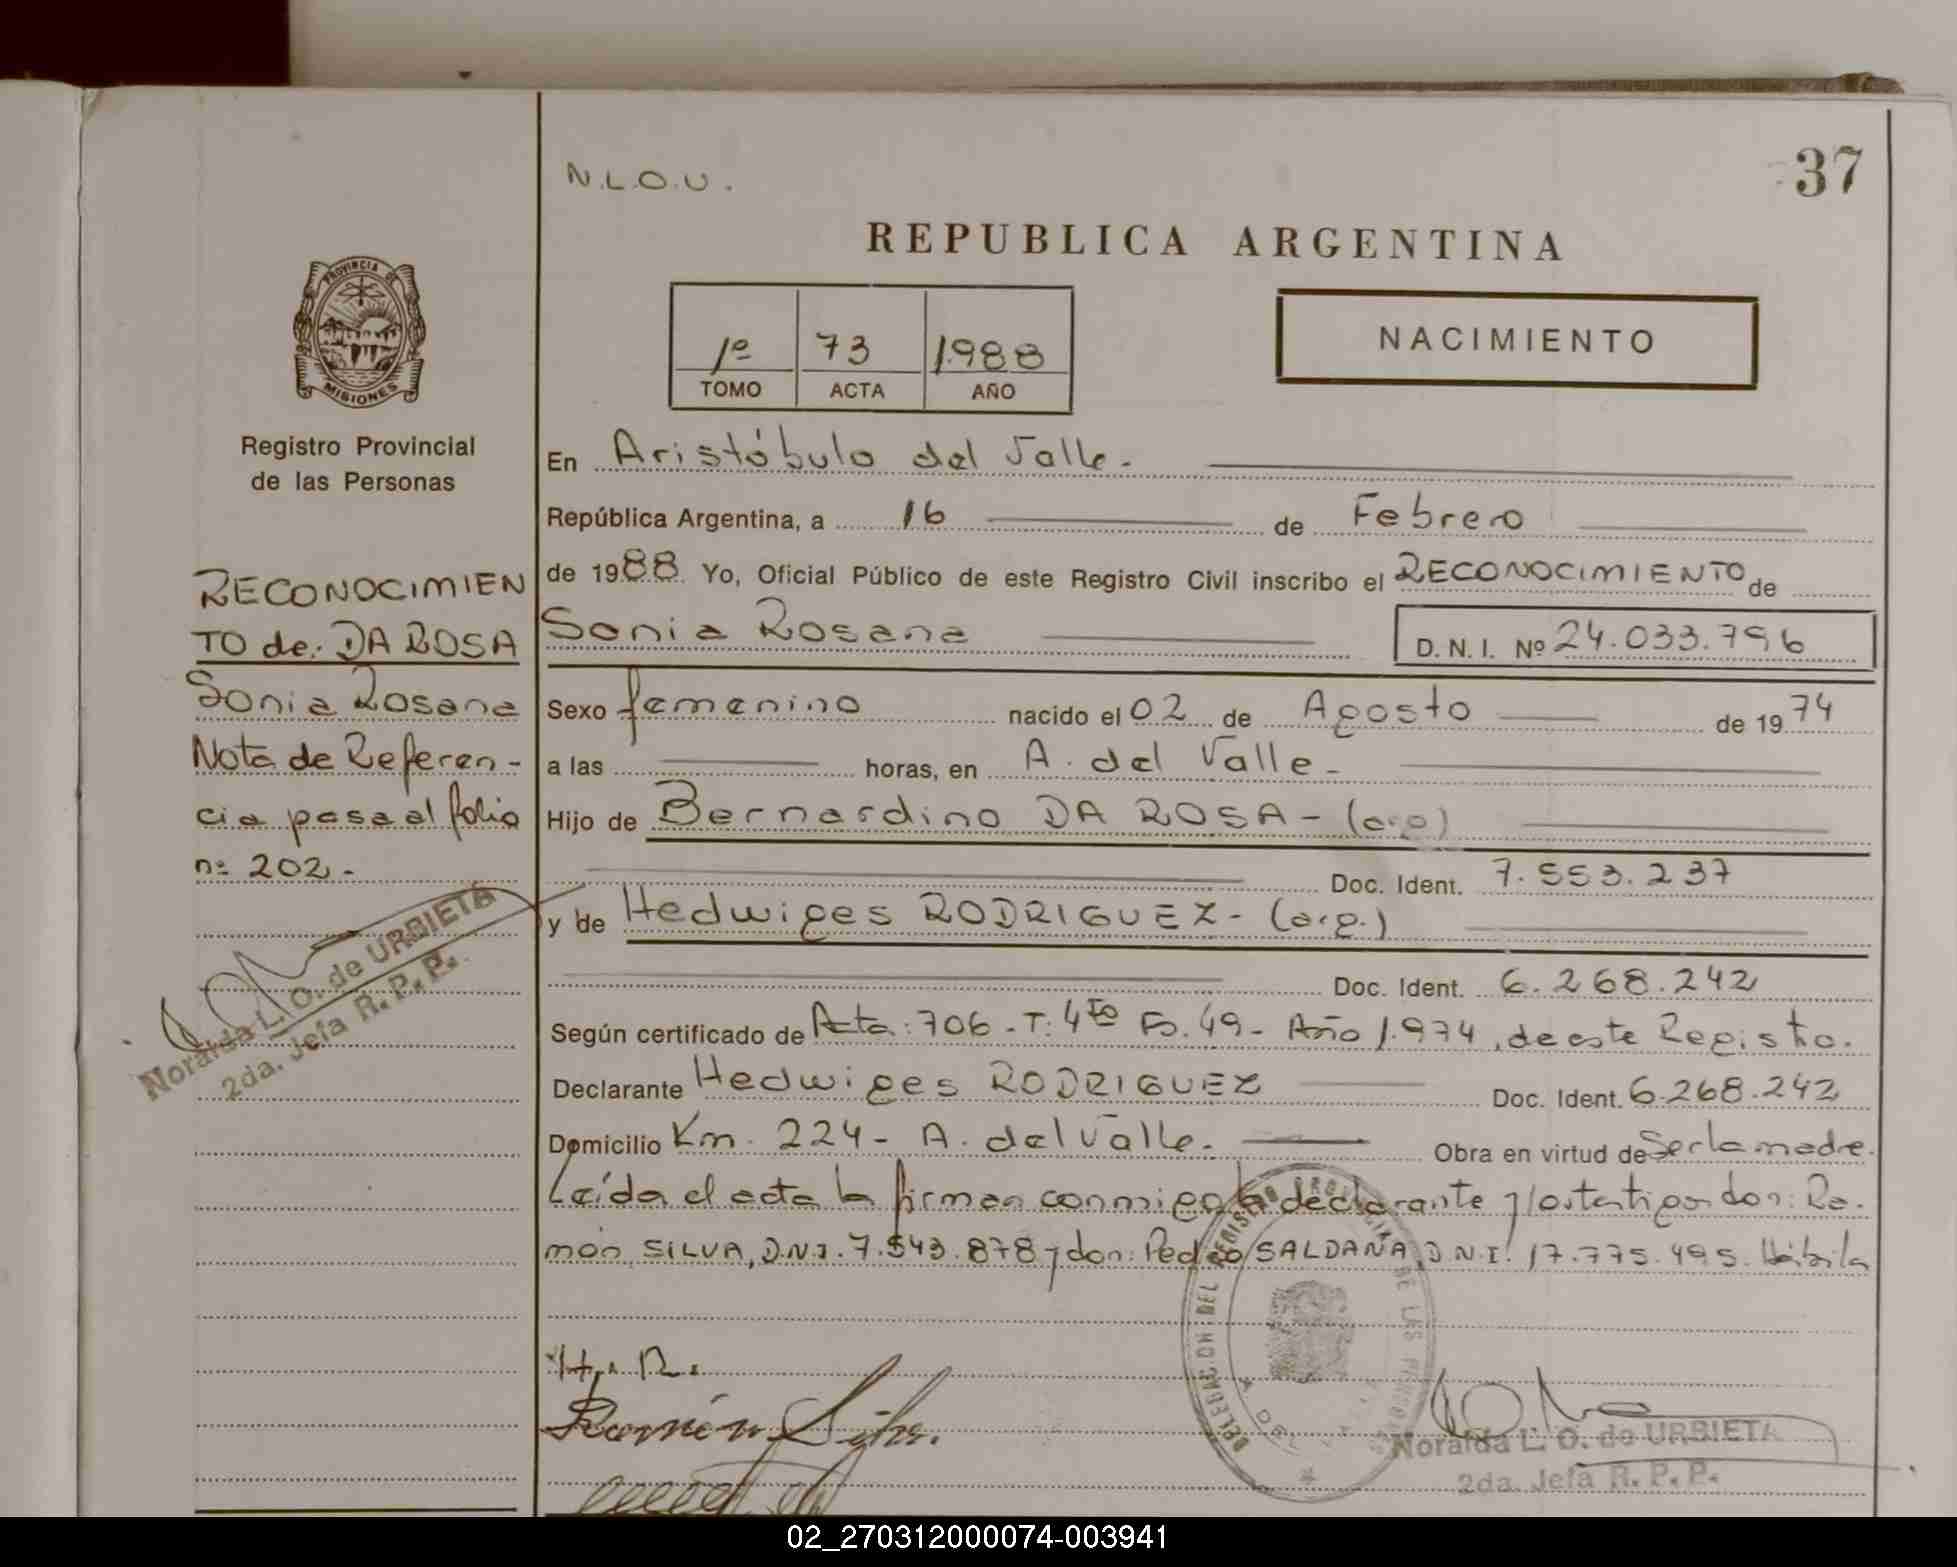 37
N.L.O.U.
REPUBLICA ARGENTINA
PROVINCIA DE
MISIONES
Registro Provincial
de las Personas
1º 73 1988
TOMO ACTA AÑO
NACIMIENTO
RECONOCIMIEN
TO de: DA ROSA
Sonia Rosana
Nota de Referen-
cia pasa al folio
nº 202.-
Noralda L. O. de URBIETA
2da. Jefa R. P. P.
En Aristóbulo del Valle.-
República Argentina, a 16 de Febrero
de 1988. Yo, Oficial Público de este Registro Civil inscribo el RECONOCIMIENTO de
Sonia Rosana D. N. I. Nº 24.033.796
Sexo femenino nacido el 02 de Agosto de 1974
a las horas, en A. del Valle.-
Hijo de Bernardino DA ROSA - (arg)
Doc. Ident. 7.553.237
y de Hedwiges RODRIGUEZ - (arg.)
Doc. Ident. 6.268.242
Según certificado de Acta: 706 - T: 4to Fo. 49 - Año 1.974, de este Registro.
Declarante Hedwiges RODRIGUEZ Doc. Ident. 6.268.242
Domicilio Km. 224 - A. del Valle. Obra en virtud de Ser la madre.
Leída el acta la firman conmigo la declarante y los testigos don: Ra-
món SILVA, D.N.I. 7.543.878 y don: Pedro SALDAÑA, D.N.I. 17.775.495. Hábiles
H. R.
Ramón Silva.
DELEGACION DEL REGISTRO PROVINCIAL DE LAS PERSONAS
Noralda L. O. de URBIETA
2da. Jefa R. P. P.
02_270312000074-003941